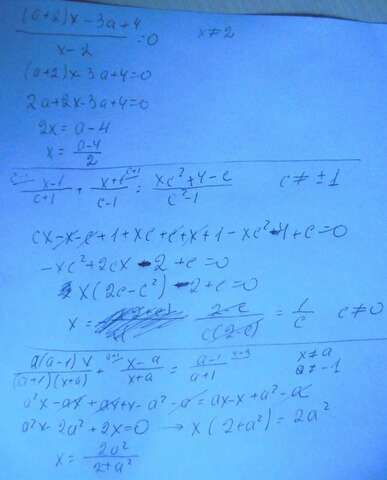 (a+2)x-3a+4
/
x-2
=0   x≠2
(a+2)x-3a+4=0
2a+2x-3a+4=0
2x=a-4
x=(a-4)/2
(x-1)/(c+1) + (x+c)/(c-1) = (xc²+4-c)/(c²-1)   c≠±1
cx-x-c+1+xc+c+x+1-xc²-4+c=0
-xc²+2cx-2+c=0
x(2c-c²)-2+c=0
x= (2-c)/(c(2-c)) = 1/c   c≠0
a(a-1)x/((a+1)(x+a)) + (x-a)/(x+a) = (a-1)/(a+1)   x≠a
a≠-1
a²x-ax+ax+x-a²-a=ax-x+a²-a
a²x-2a²+2x=0 → x(2+a²)=2a²
x=2a²/(2+a²)